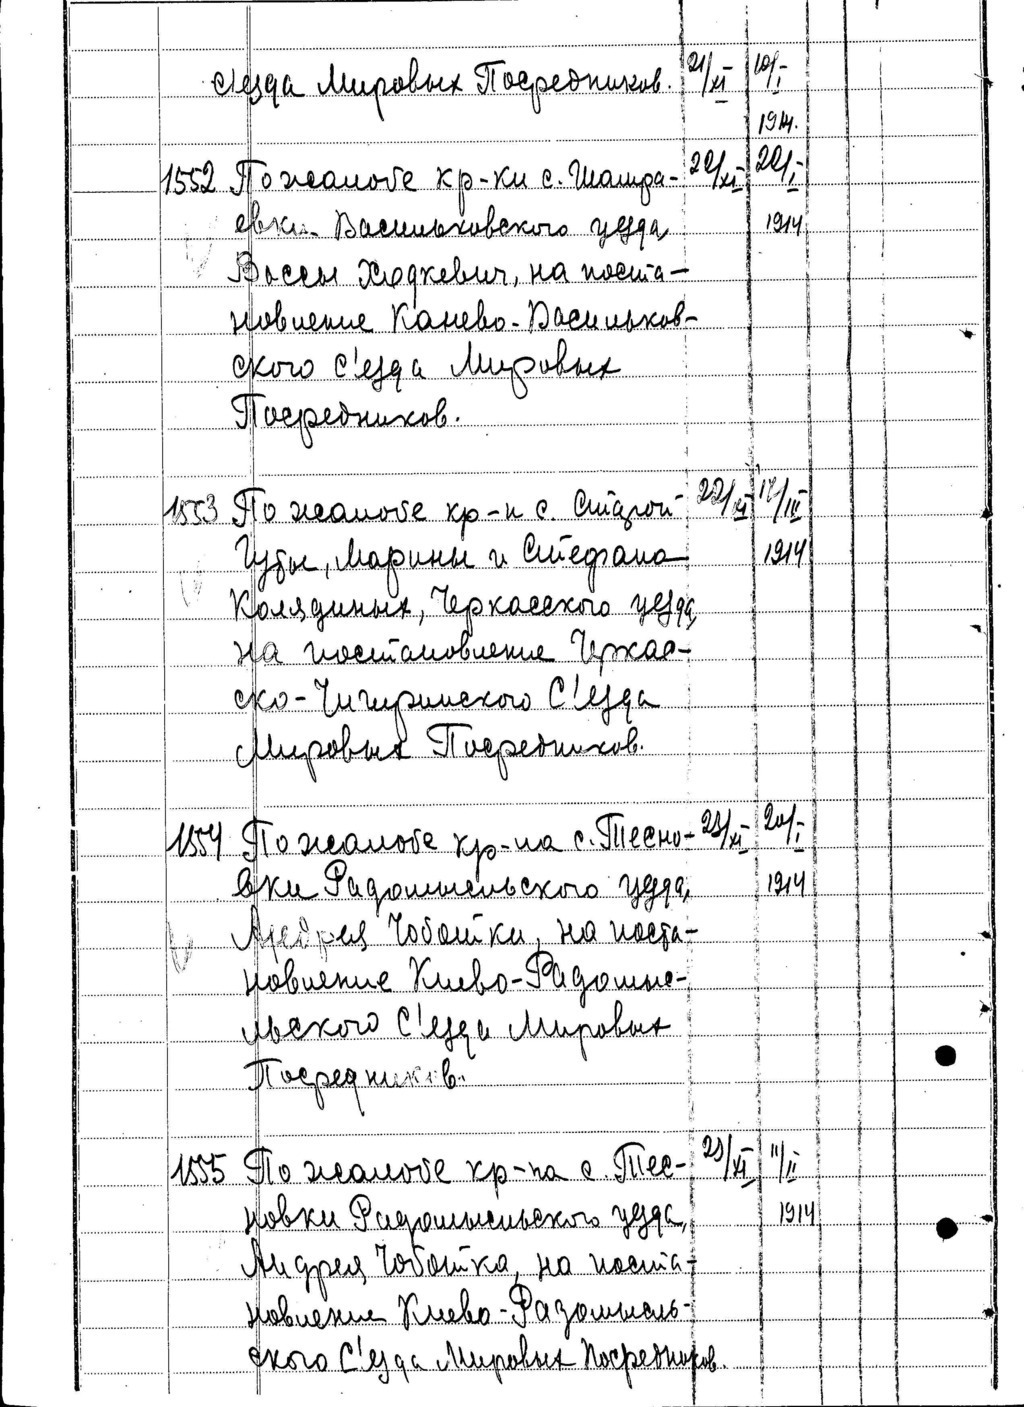 с'езда Мировых Посредников. 21/XI 10/I
1914.
1552 По жалобе кр-ки с. Шамра- 20/XI 20/I
евки Васильковского уезда, 1914
Вассы Ходкевич, на поста-
новление Канево-Васильков-
ского с'езда Мировых
Посредников.
1553 По жалобе кр-н с. Старой 22/XI 17/III
Гуты, Марины и Стефана 1914
Колядиных, Черкасского уезда,
на постановление Черкас-
ско-Чигиринского С'езда
Мировых Посредников.
1554 По жалобе кр-на с. Тесно- 23/XI 20/I
вки Радомысльского уезда, 1914
Андрея Чоботки, на поста-
новление Киево-Радомыс-
льского С'езда Мировых
Посредников.
1555 По жалобе кр-на с. Тес- 23/XI 11/II
новки Радомысльского уезда, 1914
Андрея Чоботка, на поста-
новление Киево-Разомысль-
ского С'езда Мировых Посредников.